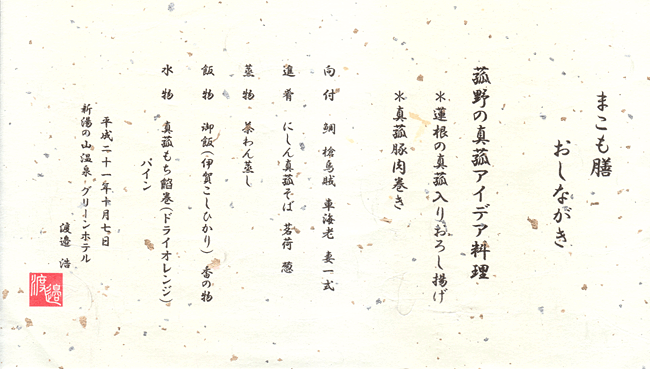 まこも膳
おしながき
菰野の真菰アイデア料理
＊蓮根の真菰入りおろし揚げ
＊真菰豚肉巻き
向付　鯛　槍烏賊　車海老　妻一式
進肴　にしん真菰そば　茗荷　葱
蒸物　茶わん蒸し
飯物　御飯(伊賀こしひかり)　香の物
水物　真菰もち餡巻(ドライオレンジ)
パイン
平成二十一年十月七日
新湯の山温泉・グリーンホテル
渡邉　浩
渡邉